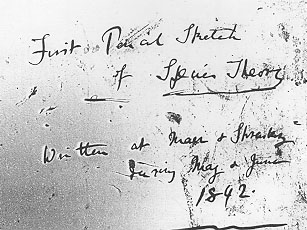 First Pencil Sketch
of Species Theory
Written at Maer & Shrewsbury
during May & June
1842.